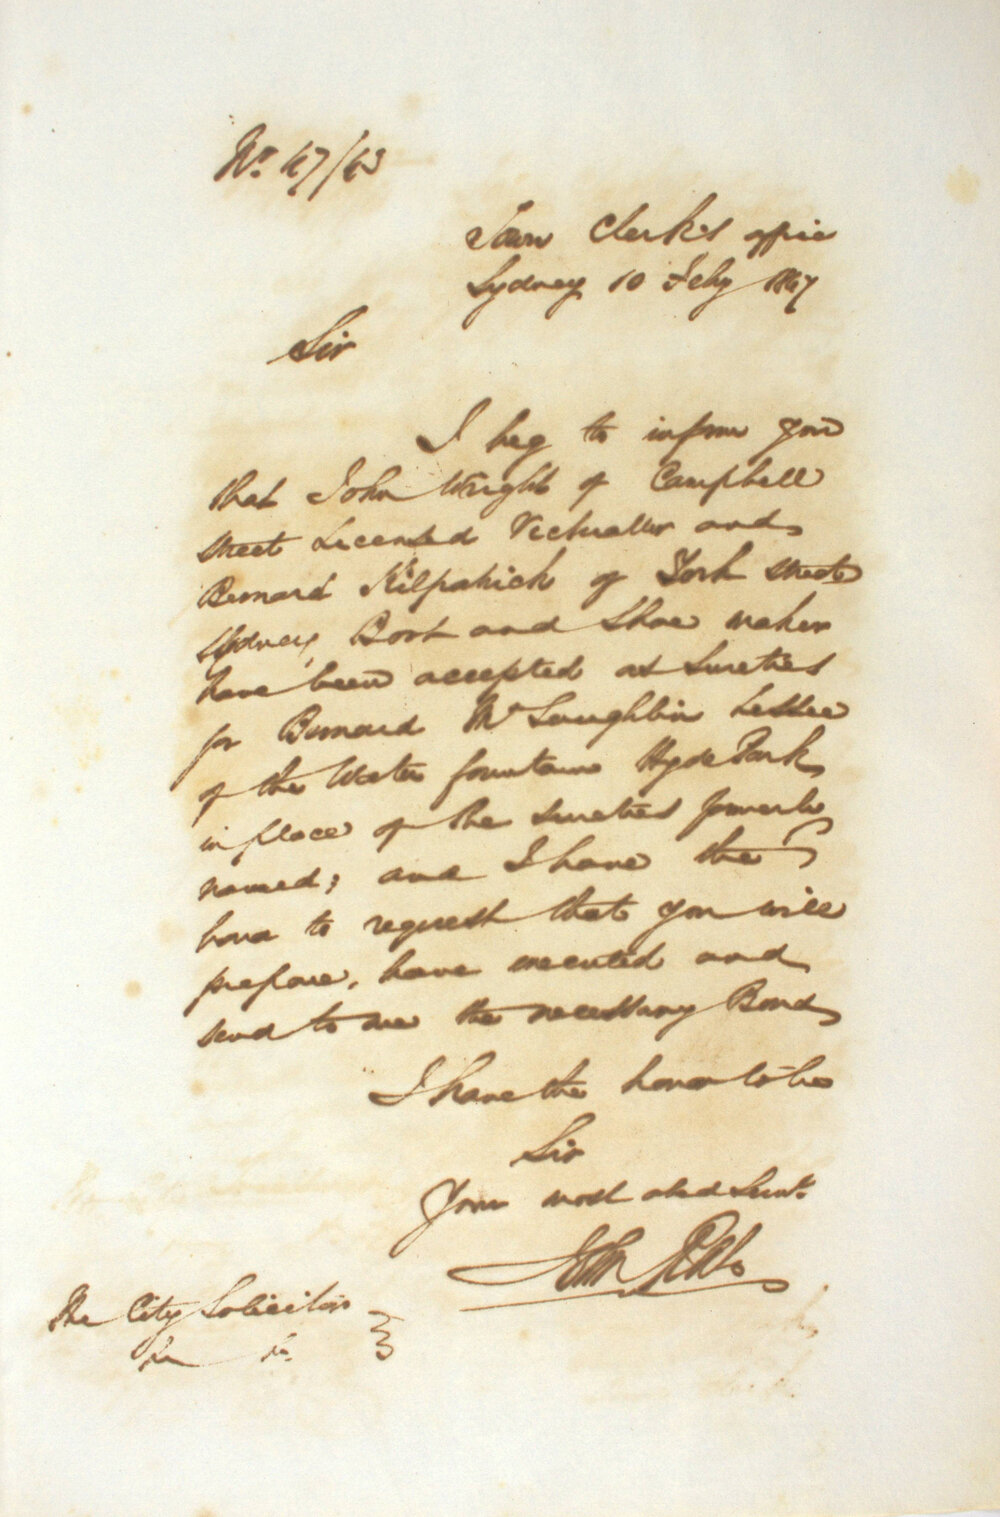 No. 47/63
Town Clerk's office
Sydney 10 Feby 1847
Sir
I beg to inform you
that John Wright of Campbell
street Licensed Victualler and
Bernard Kilpatrick of York street
Sydney, Boot and Shoe maker
have been accepted as sureties
for Bernard McLaughlin Lessee
of the Water fountain Hyde Park
in place of the sureties formerly
named; and I have the
honor to request that you will
prepare, have executed and
send to me the necessary Bond
I have the honor to be
Sir
Your most obed Servt.
John
The City Solicitor
&c &c.